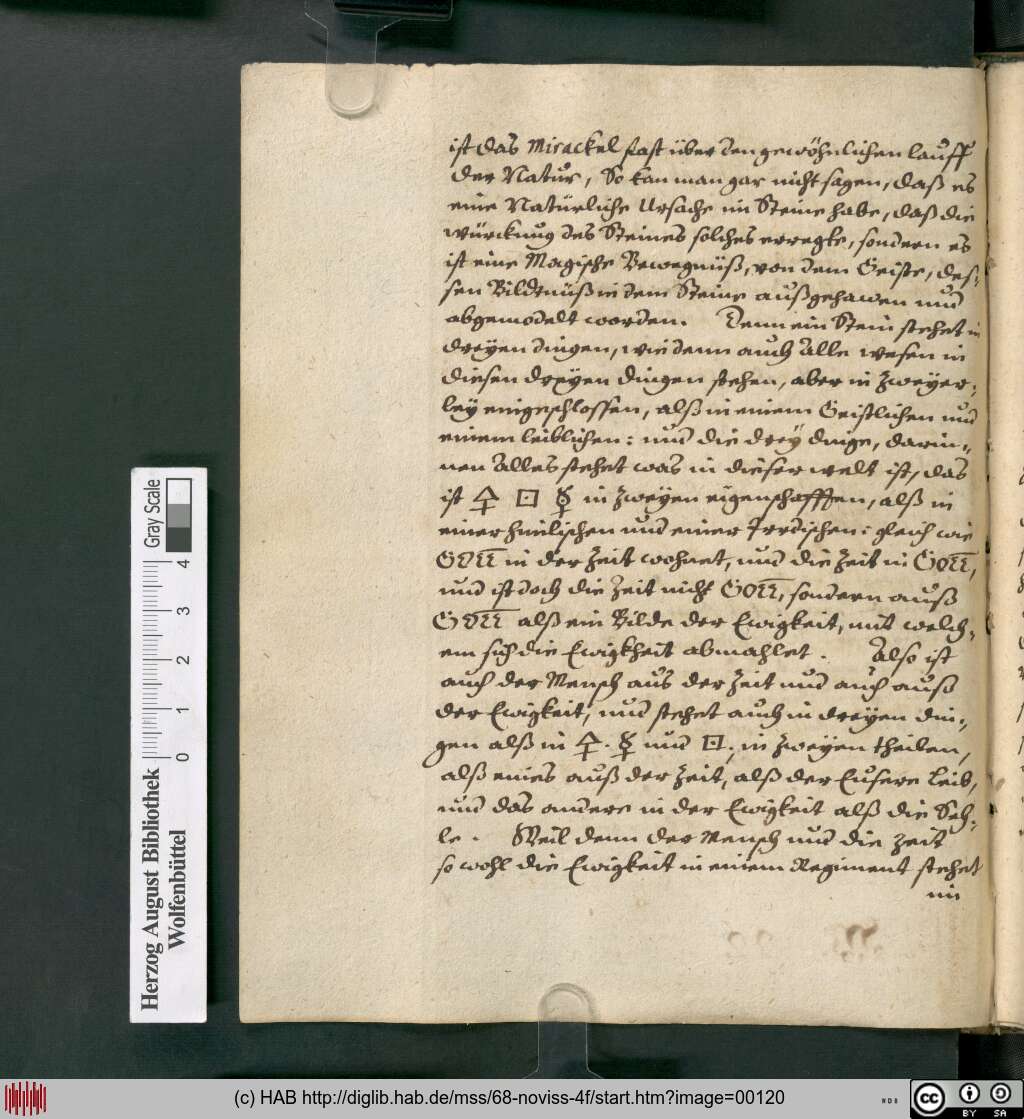 ist das Mirackel fast über den gewöhnlichen lauff
der Natur, So kan man gar nicht sagen, daß es
eine Natürliche Ursache im Steine habe, daß die
würckung des Steines solches erregte, sondern es
ist eine Magische Bewegnüß, von dem Geiste, des-
sen Bildtnüß in dem Steine außgehawen und
abgemodelt worden. Denn ein Stein stehet in
dreyen dingen, wie denn auch Alle wesen in
diesen dreyen dingen stehen, aber in zweyer-
ley eingeschlossen, alß in einem Geistlichen und
einem leiblichen: und die drey dinge, darin-
nen Alles stehet was in dieser welt ist, das
ist 🜍 🞔 ☿ in zweyen eigenschafften, alß in
einer himlischen und einer Irrdischen: gleich wie
GOTT in der Zeit wohnet, und die Zeit in GOTT,
und ist doch die Zeit nicht GOTT, sondern auß
GOTT alß ein Bilde der Ewigkeit, mit welch-
em sich die Ewigkheit abmahlet. Also ist
auch der Mensch aus der Zeit und auch auß
der Ewigkeit, und stehet auch in dreyen din-
gen alß in 🜍. ☿ und 🞔, in zweyen theilen,
alß eines auß der Zeit, alß der Eusere leib,
und das andere in der Ewigkeit alß die Seh-
le. Weil denn der Mensch und die Zeit
so wohl die Ewigkeit in einem Regiment stehet
im
Herzog August Bibliothek
Wolfenbüttel
0 1 2 3 4
Gray Scale
(c) HAB http://diglib.hab.de/mss/68-noviss-4f/start.htm?image=00120
WDB
CC BY SA